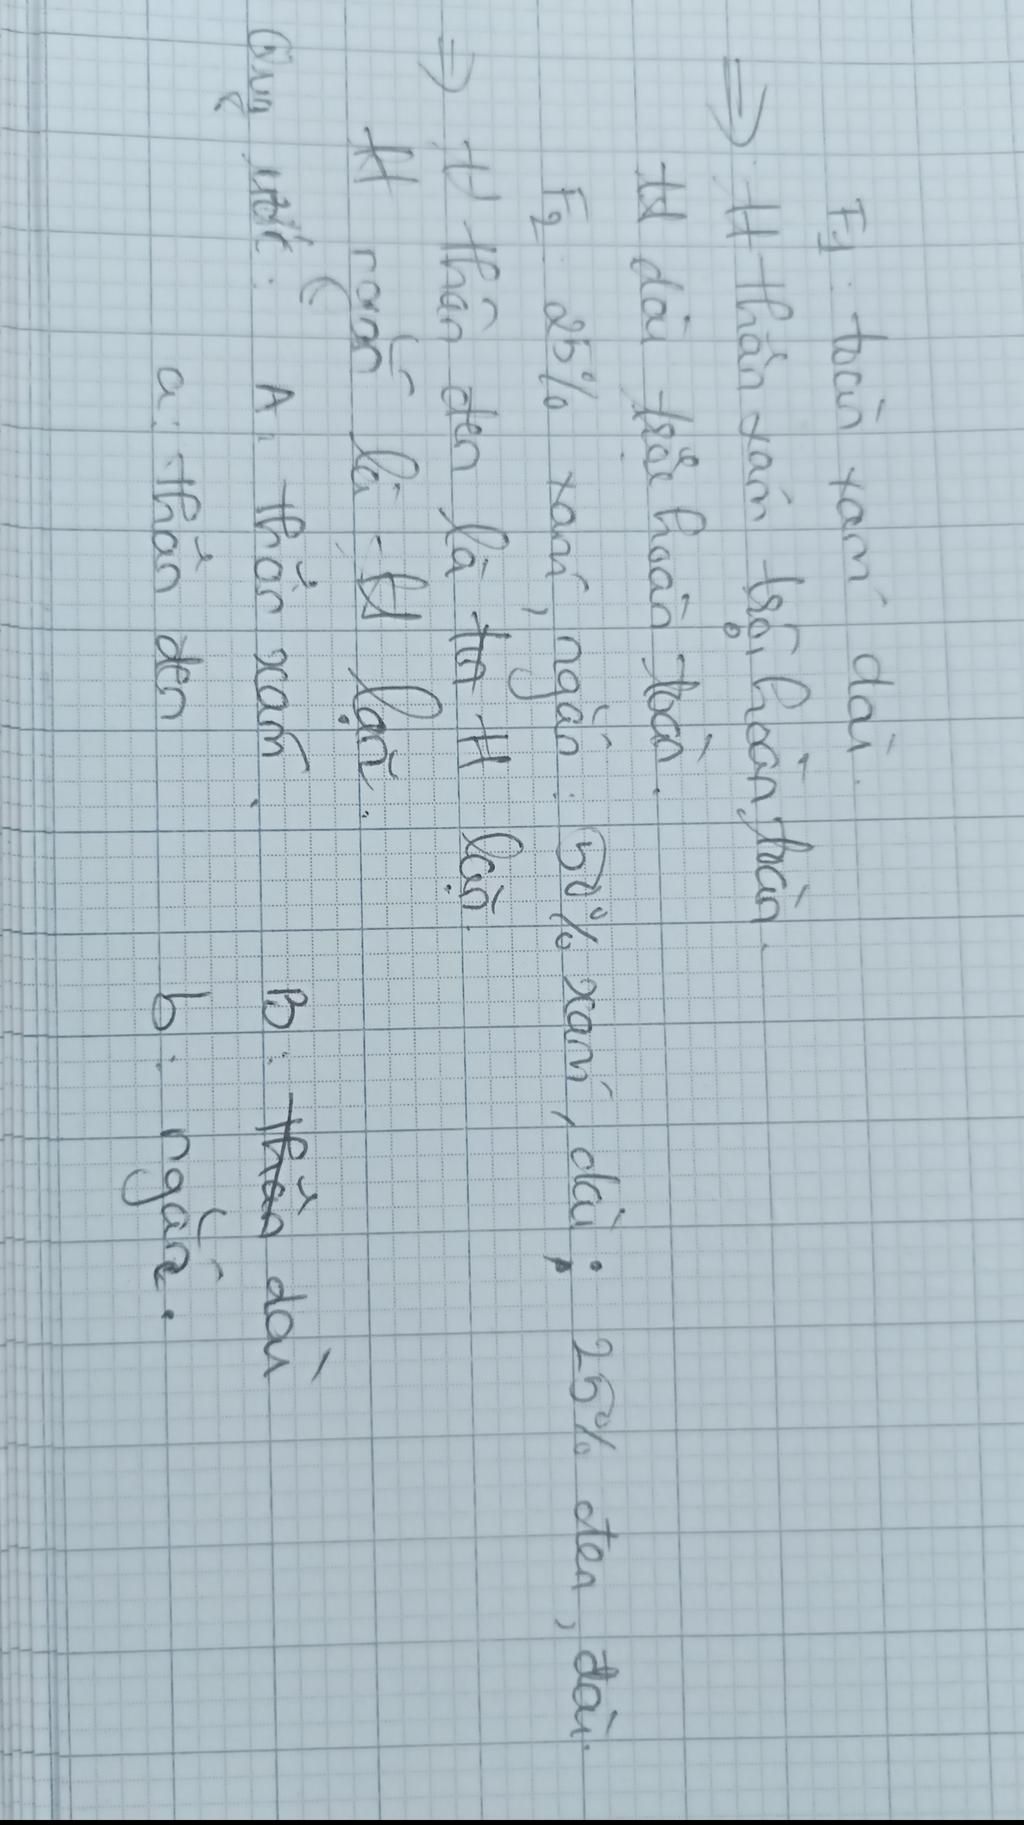 F1: toàn xám dài.
=> tt thân xám trội hoàn toàn.
tt dài trội hoàn toàn.
F2 25% xám, ngắn: 50% xám, dài; 25% đen, dài.
=> tt thân đen là tt lặn.
tt ngắn là tt lặn.
Quy ước: A: thân xám. B: dài
a: thân đen b: ngắn.